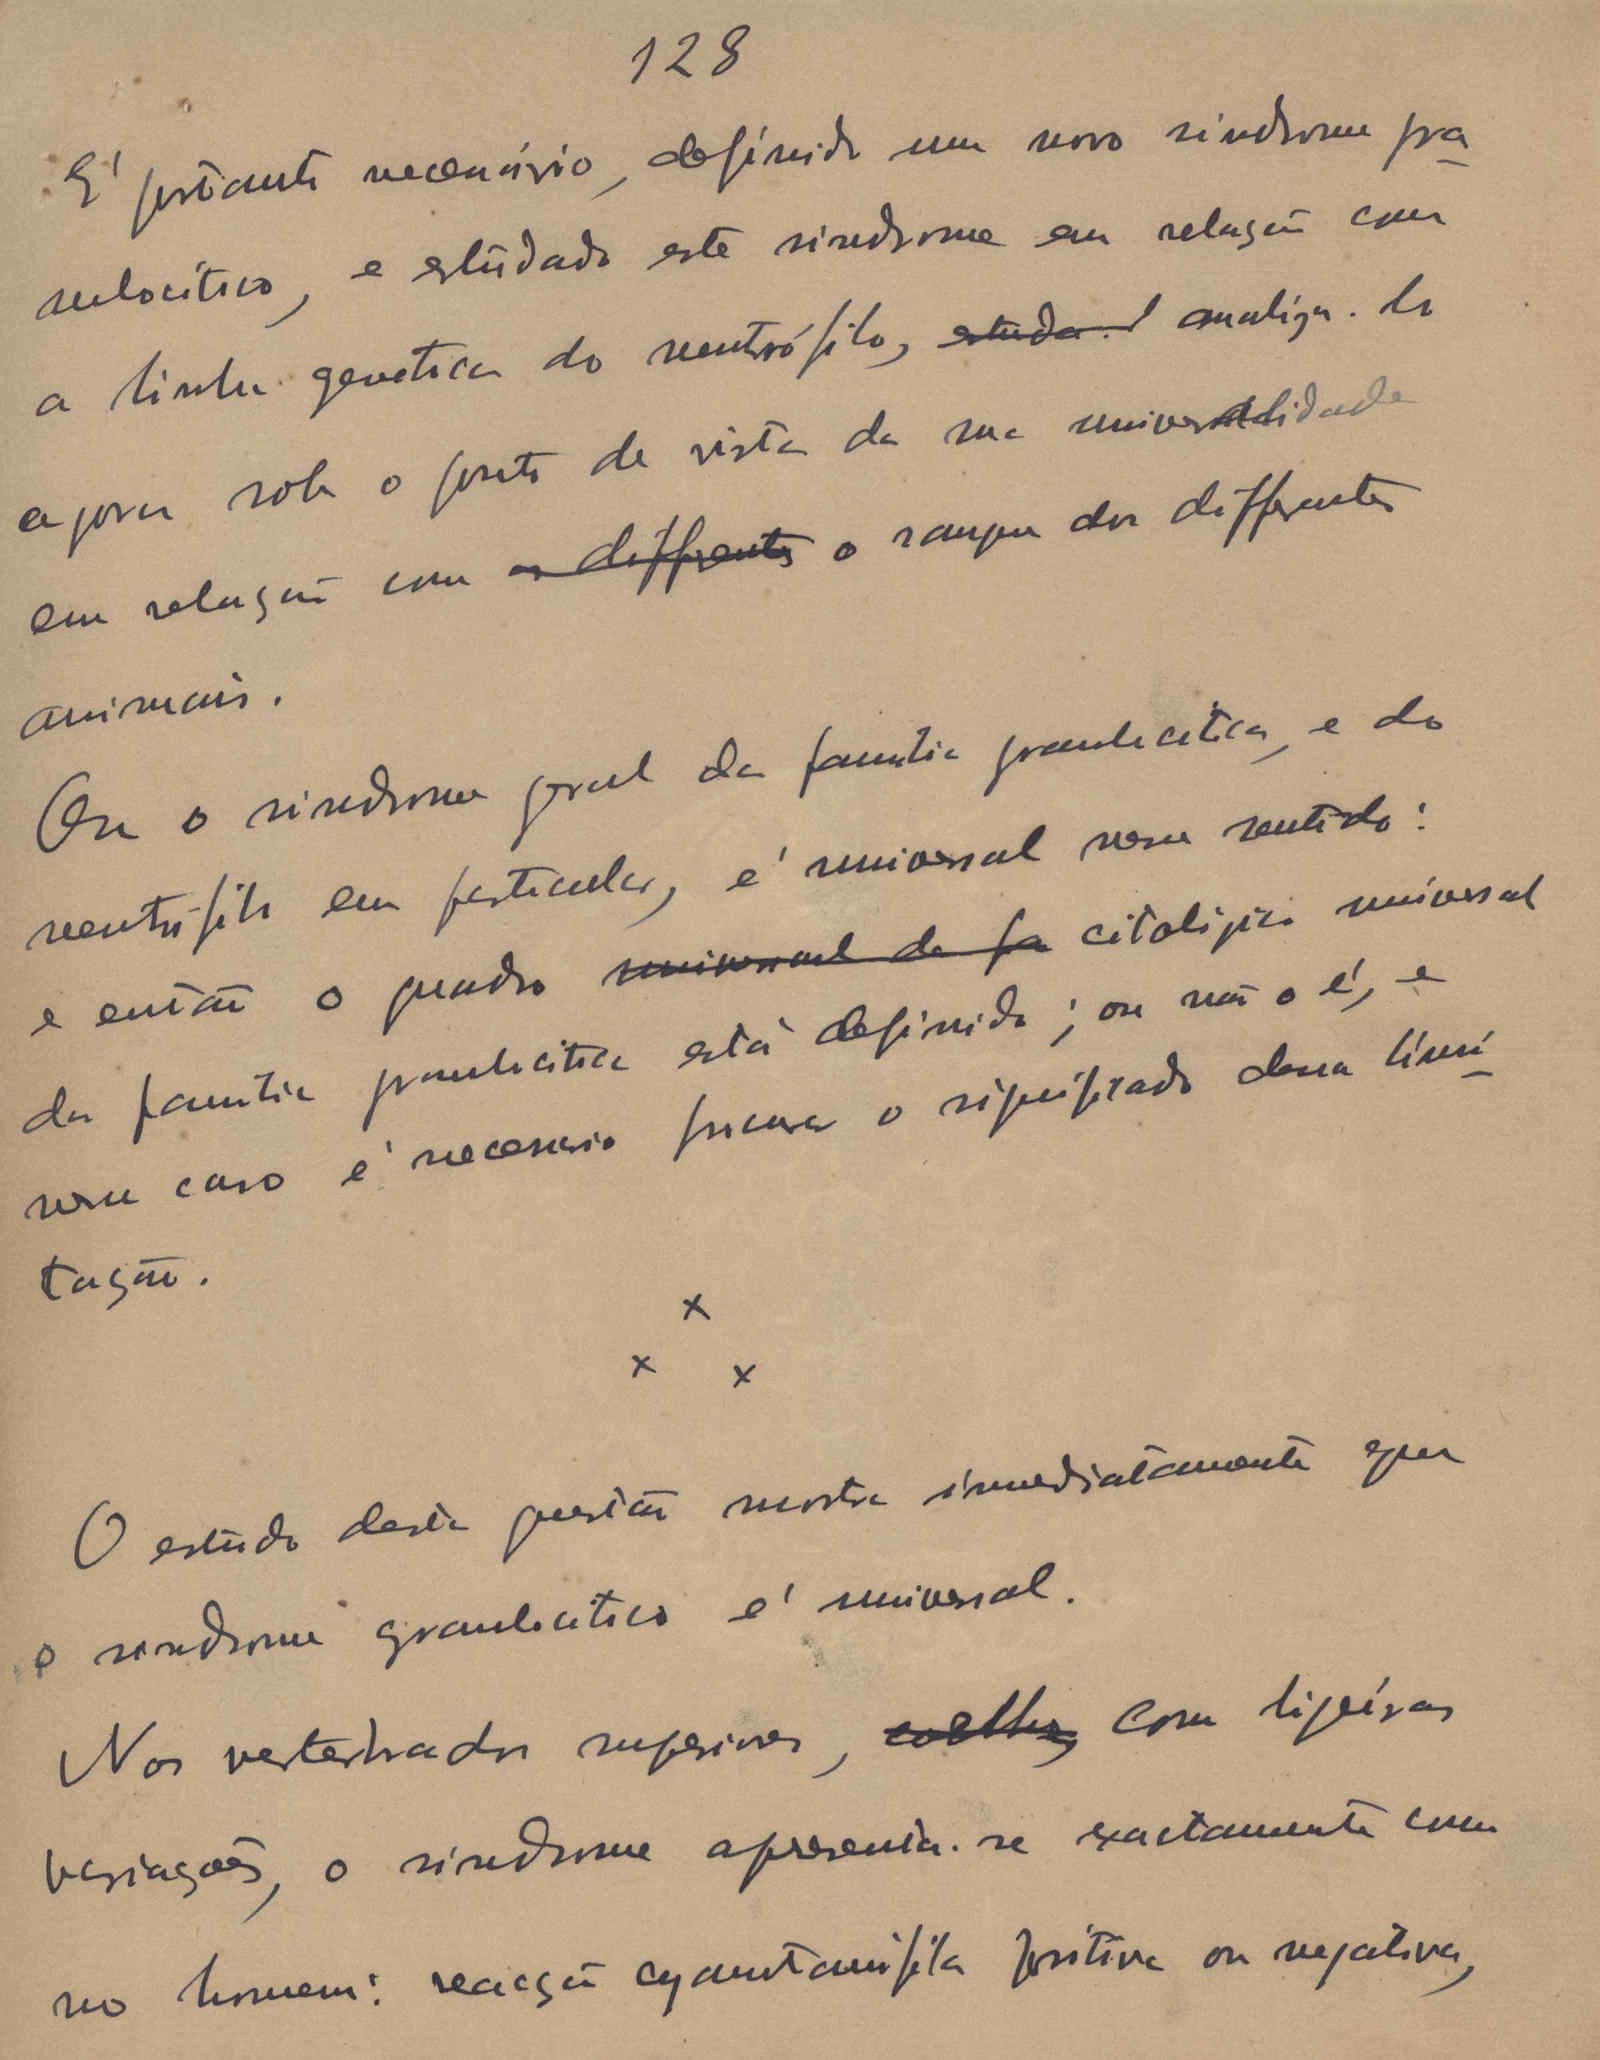 128
E' portanto necessário, definido um novo sindrome gra-
nulocitico, e estudado este sindrome em relação com
a linha genetica do neutrófilo, estuda-l analiza-lo
agora sob o ponto de vista da sua universalidade
em relação com os differentes o sangue dos differentes
animais.
Ou o sindrome geral da familia granulocitica, e do
neutrófilo em particular, é universal nesse sentido:
e então o quadro universal da fa citológico universal
da familia granulocitica está definido; ou não o é, e
nesse caso é necessario procurar o significado dessa limi-
tação.
x
x x
O estudo desta questão mostra immediatamente que
o sindrome granulocitico é universal.
Nos vertebrados superiores, coelho, com ligeiras
variações, o sindrome apresenta-se exactamente como
no homem: reacção positiva ou negativa,